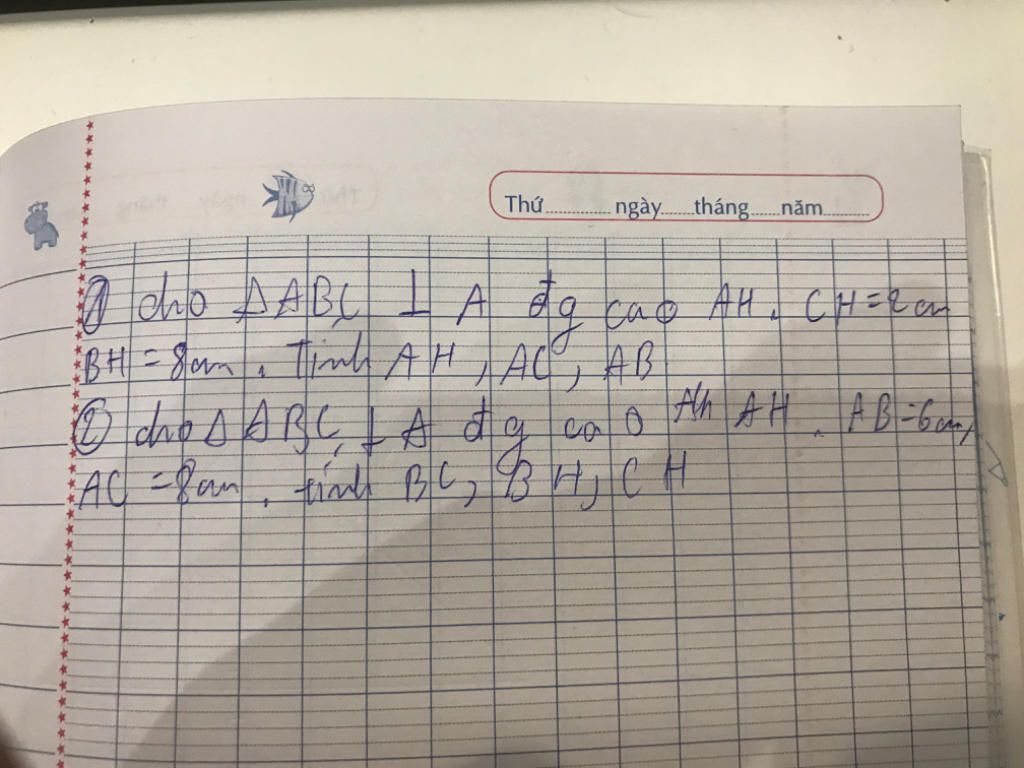 Thứ............ ngày......tháng......năm.........
① cho ΔABC ⊥ A đg cao AH. CH=2cm
BH = 8cm. Tính AH, AC, AB
② cho Δ ABC ⊥ A đg cao Ah AH. AB=6cm,
AC = 8cm. tính BC, BH, CH